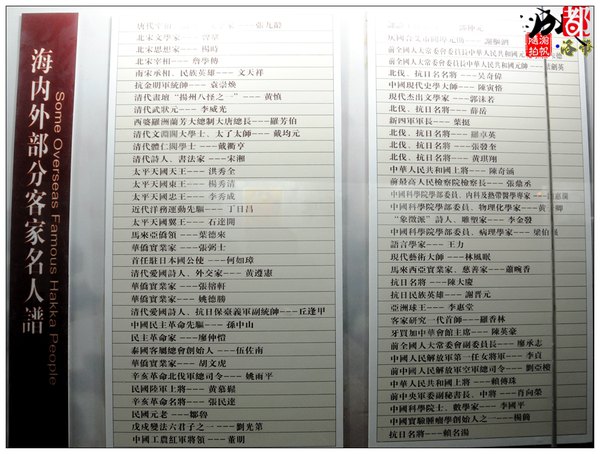 海內外部分客家名人譜
Some Overseas Famous Hakka People
唐代宰相---張九齡
北宋文學家---曾鞏
北宋思想家---楊時
北宋宰相---曾學傳
南宋承相、民族英雄---文天祥
抗金明軍統帥---袁崇煥
清代畫壇“揚州八怪之一”---黃慎
清代武狀元---李威光
西婆羅洲蘭芳大總制大唐總長---羅芳伯
清代文淵閣大學士、太子太師---戴均元
清代體仁閣學士---戴衢亨
清代詩人、書法家---宋湘
太平天國天王---洪秀全
太平天國東王---楊秀清
太平天國忠王---李秀成
近代洋務運動先驅---丁日昌
太平天國翼王---石達開
馬來亞僑領---葉德來
華僑實業家---張弼士
首任駐日本國公使---何如璋
清代愛國詩人、外交家---黃遵憲
華僑實業家---張榕軒
華僑實業家---姚德勝
清代愛國詩人、抗日保臺義軍副統帥---丘逢甲
中國民主革命先驅---孫中山
民主革命家---廖仲愷
泰國客屬總會創始人---伍佐南
華僑實業家---胡文虎
辛亥革命北伐軍總司令---姚雨平
民國陸軍上將---黃慕鬆
辛亥革命名將---張民達
民國元老---鄒魯
戊戌變法六君子之一---劉光第
中國工農紅軍將領---董明
前全國人大常委會委員長中華人民共和國元帥---
前全國人大常委會委員長中華人民共和國元帥---葉劍英
北伐、抗日名名將---吳奇偉
中國現代史學大師---陳寅恪
現代杰出文學家---郭沫若
北伐、抗日名將---薛岳
新四軍軍長---葉挺
北伐、抗日名將---羅卓英
北伐、抗日名將---張發奎
北伐、抗日名將---黃琪翔
中華人民共和國上將---陳奇涵
前最高人民檢察院檢察長---張鼎丞
中國科學院學部委員、內科及熱帶醫學專家---
中國科學院學部委員、物理化學家---黃
“象徵派”詩人、雕塑家---李金發
中國科學院學部委員、病理學家---梁伯強
語言學家---王力
現代藝術大師---林風眠
馬來西亞實業家、慈善家---蕭畹香
抗日名將---陳大慶
抗日民族英雄---謝晉元
亞洲球王---李惠堂
客家研究一代首師---羅香林
牙買加中華會館主席---陳英豪
前全國人大常委會副委員長---廖承志
中國人民解放軍第一任女將軍---李貞
前中國人民解放軍空軍總司令---劉亞樓
中華人民共和國上將---賴傳珠
前中央軍委副秘書長、中將---肖向榮
中國科學院士、數學家---李國平
中國實驗腫瘤學創始人之一---楊簡
抗日名將---賴名湯